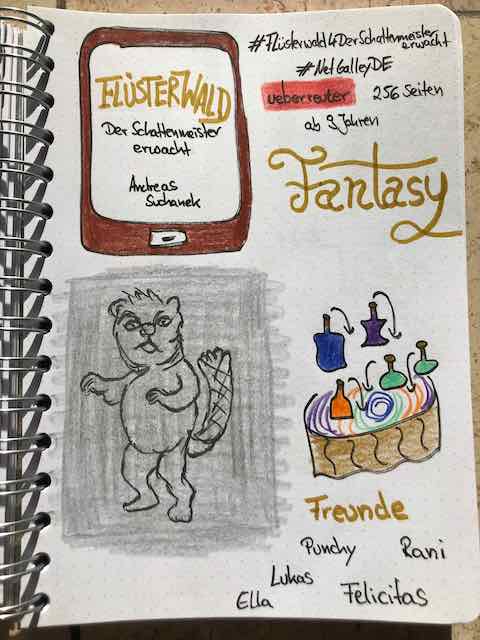 FLÜSTERWALD
Der Schattenmeister
erwacht
Andreas
Suchanek
#Flüsterwald4DerSchattenmeister
erwacht
#NetGalleyDE
ueberreuter 256 Seiten
ab 9 Jahren
Fantasy
Freunde
Punchy Rani
Lukas
Ella Felicitas